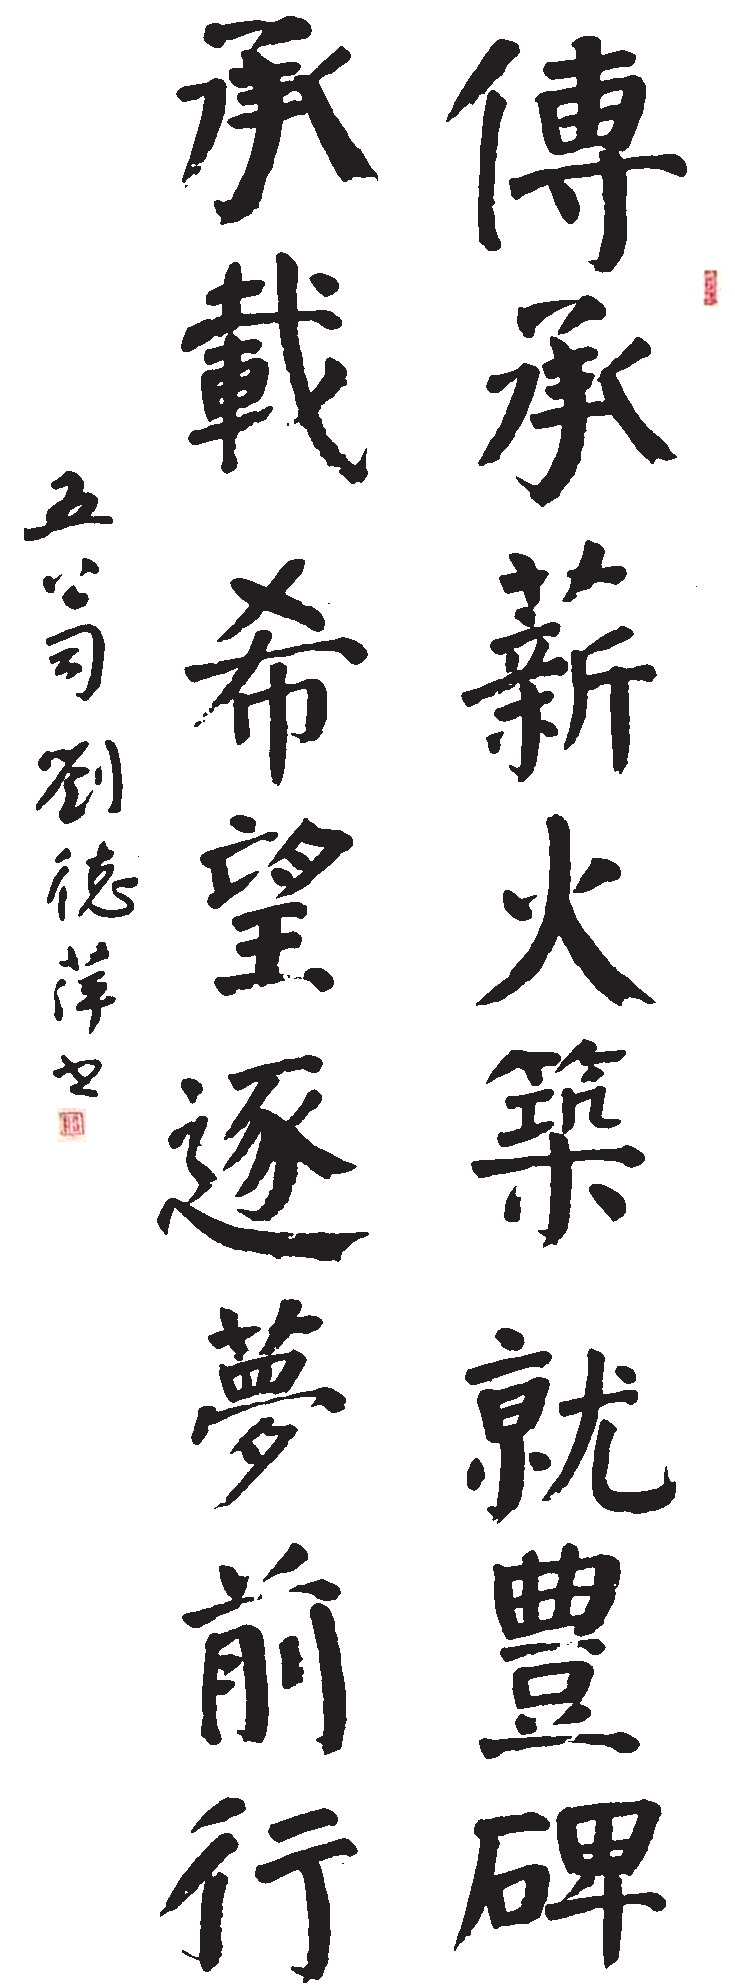 傳承薪火築就豊碑
承載希望逐夢前行
五公司劉德萍书